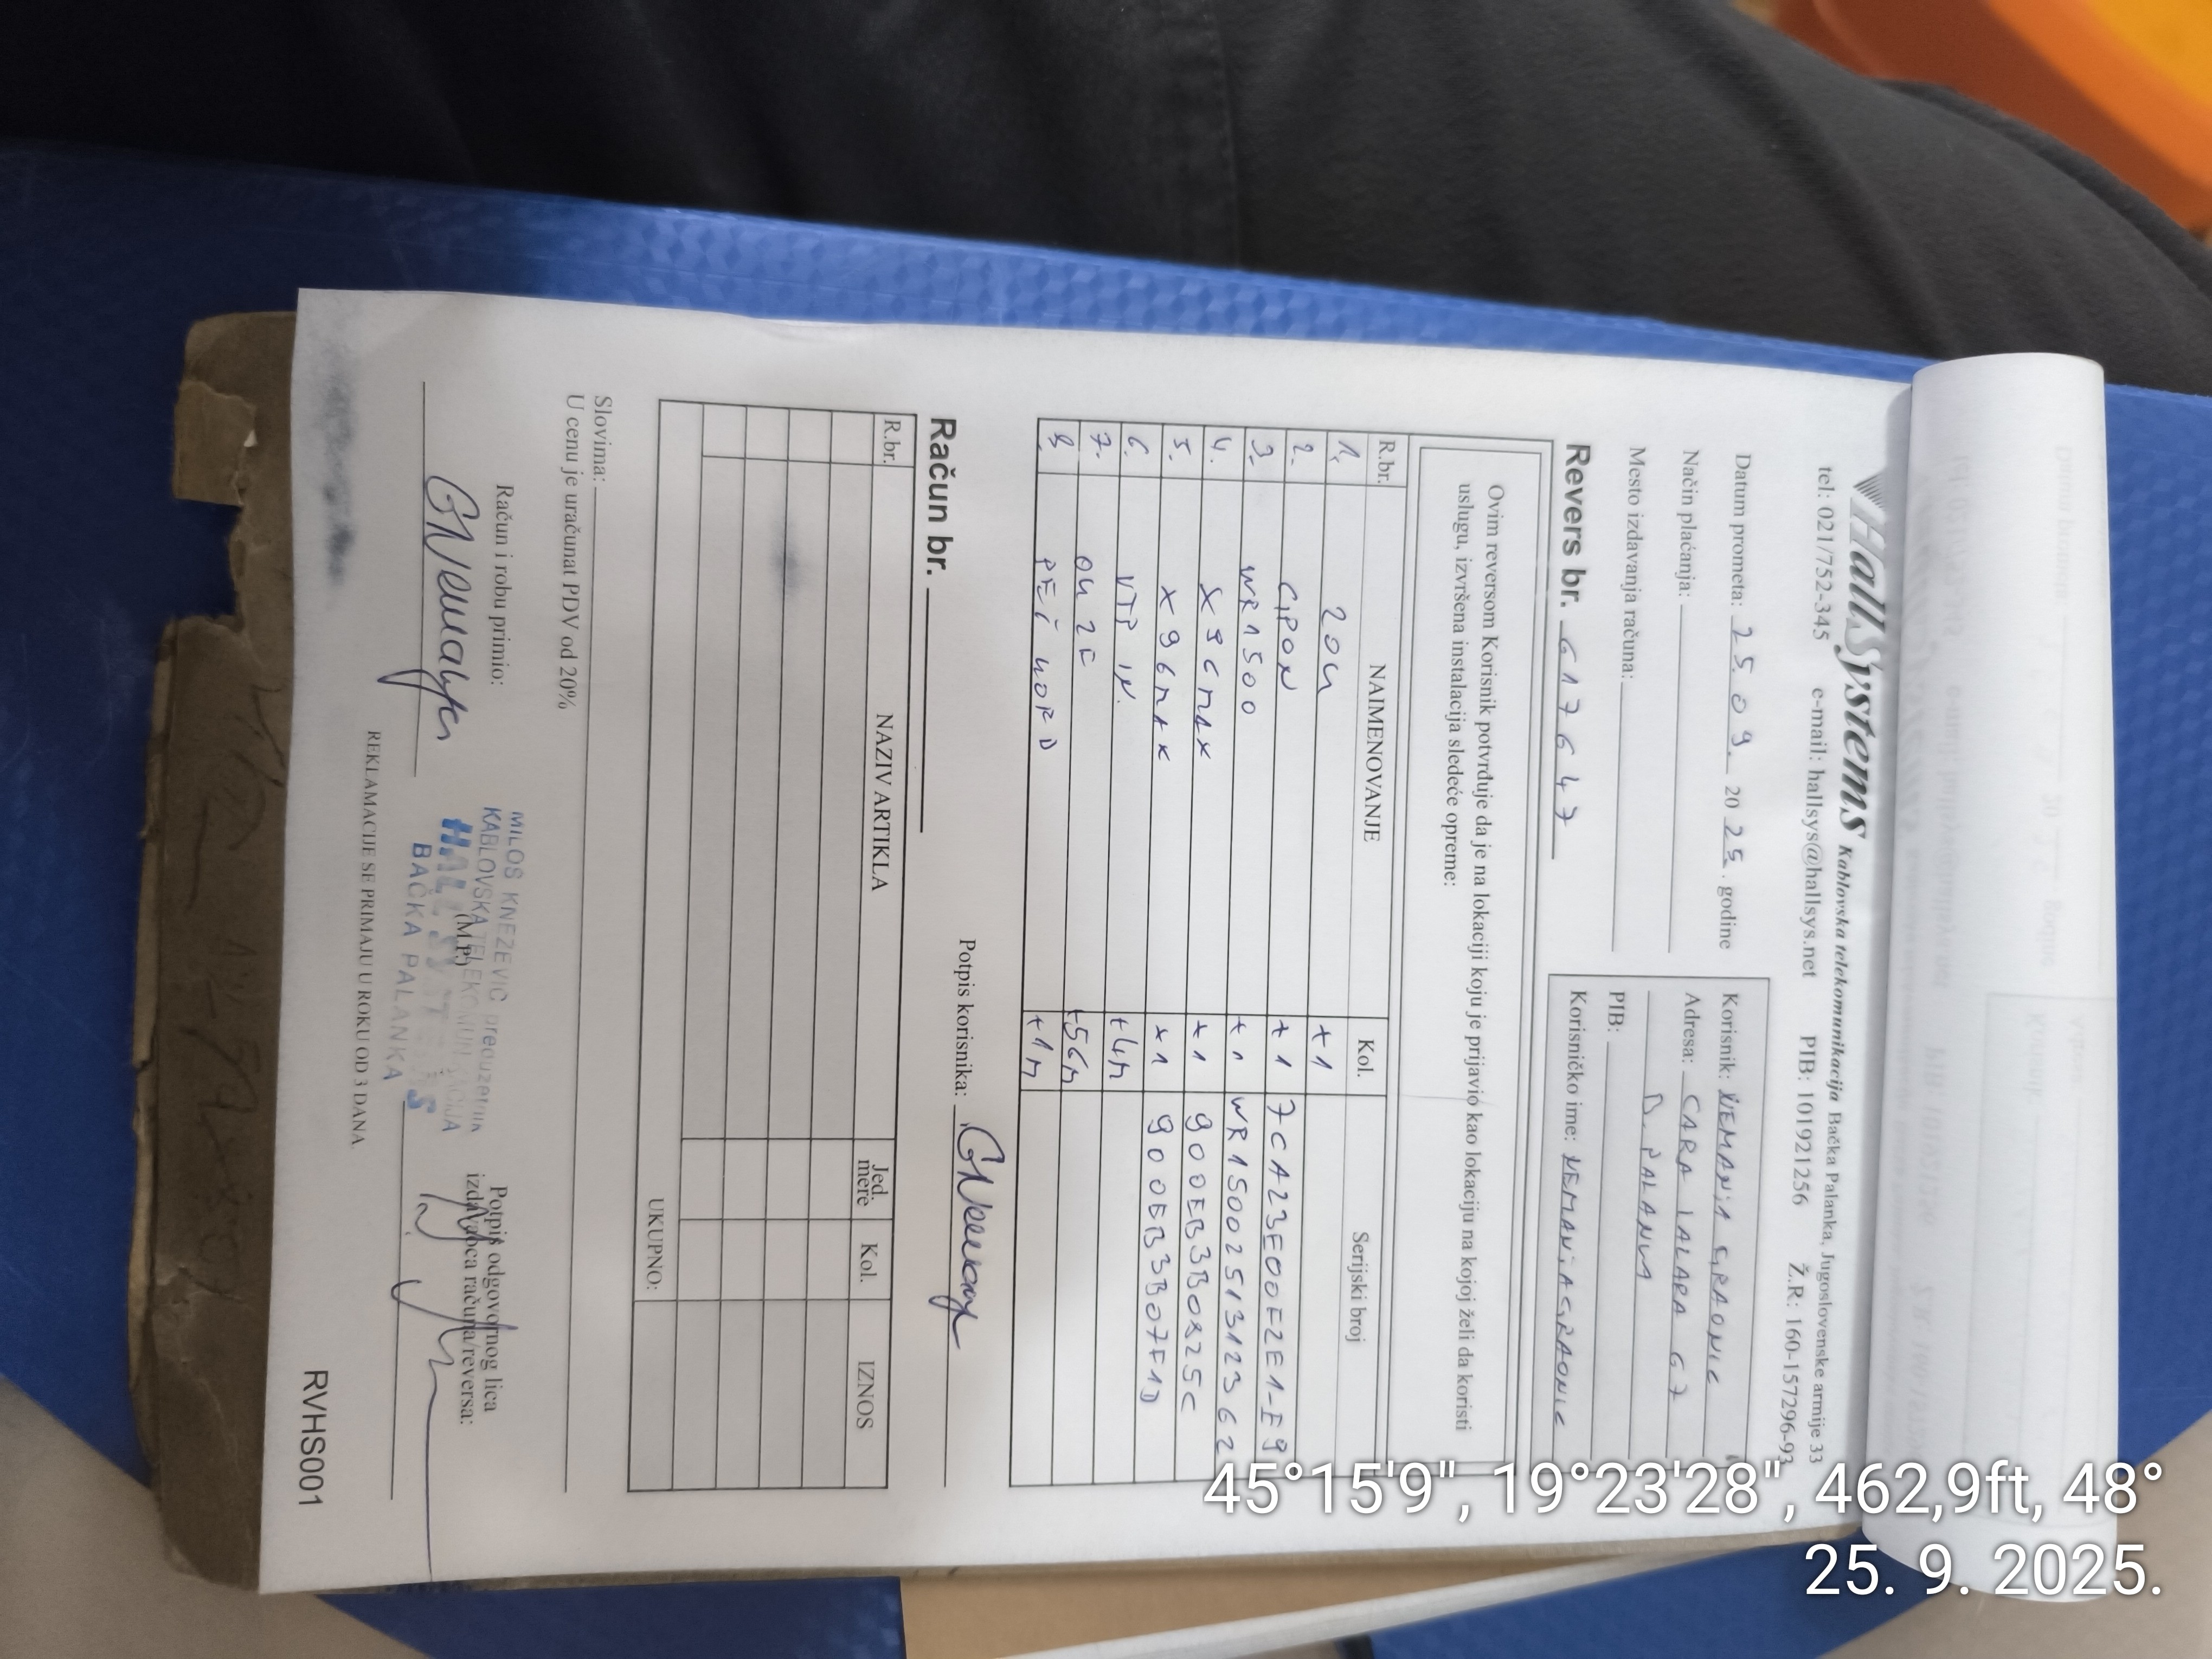 HallSystems Kablovska telekomunikacija Bačka Palanka, Jugoslovenske armije 33
tel: 021/752-345 e-mail: hallsys@hallsys.net PIB: 101921256 Ž.R: 160-157296-93
Datum prometa: 25.09. 2025. godine
Način plaćanja:
Mesto izdavanja računa:
Korisnik: NEMANJA GRAONIC
Adresa: CARA LAZARA 67
B. PALANKA
PIB:
Korisničko ime: NEMANJAGRAONIC
Revers br. 617647
Ovim reversom Korisnik potvrđuje da je na lokaciji koju je prijavio kao lokaciju na kojoj želi da koristi
uslugu, izvršena instalacija sledeće opreme:
R.br. NAIMENOVANJE Kol. Serijski broj
1. ZOK +1
2. GPON +1 7CA23E00E2E1-E9
3. WR1500 +1 WR1500251312362
4. X96MAX +1 900EB3B0825C
5. X96MAX +1 900EB3B07F1D
6. UTP IN. +4M
7. OK 2F +56M
8 PEČ KORD +1M
Račun br.
Potpis korisnika:
R.br. NAZIV ARTIKLA Jed. mere Kol. IZNOS
UKUPNO:
Slovima:
U cenu je uračunat PDV od 20%
Račun i robu primio:
MILOŠ KNEŽEVIĆ preduzetnik
KABLOVSKA TELEKOMUNIKACIJA
HALL SYSTEMS
BAČKA PALANKA
(M.P.)
Potpis odgovornog lica
izdavaoca računa/reversa:
REKLAMACIJE SE PRIMAJU U ROKU OD 3 DANA
RVHS001
45°15'9", 19°23'28", 462,9ft, 48°
25. 9. 2025.